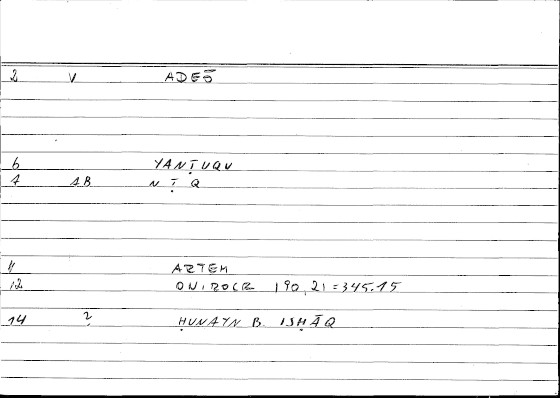 2 V ADEŌ
6 YANṬUQU
7 AB NṬQ
11 ARTEM
12 ONIROCR 190,21=345.15
14 ? ḤUNAYN B. ISḤĀQ